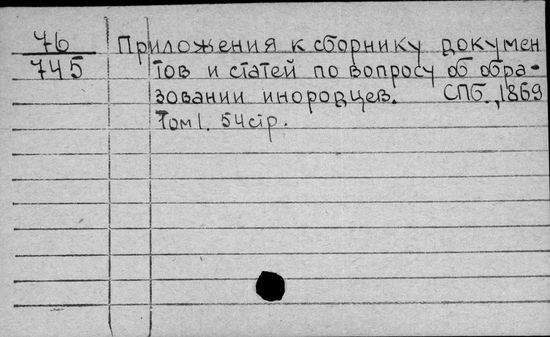 76 Приложения к сборнику докумен
745 тов и статей по вопросу об обра-
зовании инородцев. СПб., 1869
Том I. 54 стр.